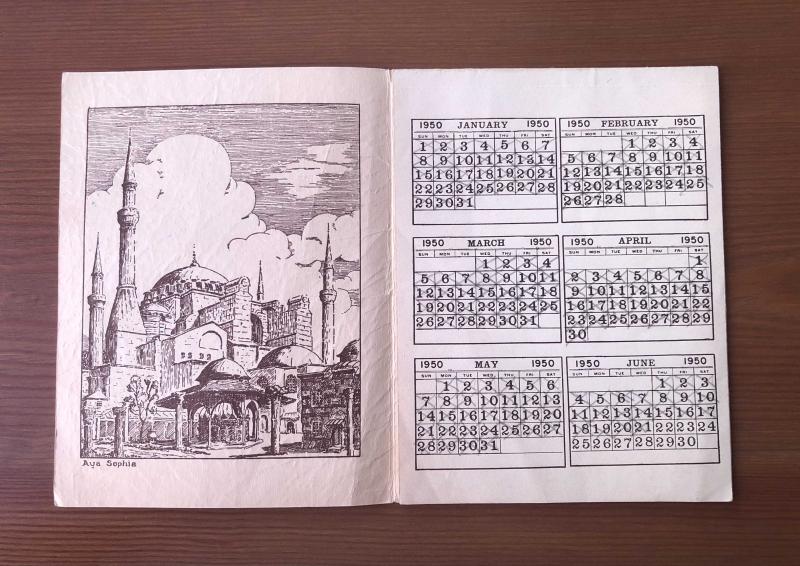 Aya Sophia
1950 JANUARY 1950
SUN MON TUE WED THU FRI SAT
1 2 3 4 5 6 7
8 9 10 11 12 13 14
15 16 17 18 19 20 21
22 23 24 25 26 27 28
29 30 31
1950 FEBRUARY 1950
SUN MON TUE WED THU FRI SAT
1 2 3 4
5 6 7 8 9 10 11
12 13 14 15 16 17 18
19 20 21 22 23 24 25
26 27 28
1950 MARCH 1950
SUN MON TUE WED THU FRI SAT
1 2 3 4
5 6 7 8 9 10 11
12 13 14 15 16 17 18
19 20 21 22 23 24 25
26 27 28 29 30 31
1950 APRIL 1950
SUN MON TUE WED THU FRI SAT
1
2 3 4 5 6 7 8
9 10 11 12 13 14 15
16 17 18 19 20 21 22
23 24 25 26 27 28 29
30
1950 MAY 1950
SUN MON TUE WED THU FRI SAT
1 2 3 4 5 6
7 8 9 10 11 12 13
14 15 16 17 18 19 20
21 22 23 24 25 26 27
28 29 30 31
1950 JUNE 1950
SUN MON TUE WED THU FRI SAT
1 2 3
4 5 6 7 8 9 10
11 12 13 14 15 16 17
18 19 20 21 22 23 24
25 26 27 28 29 30